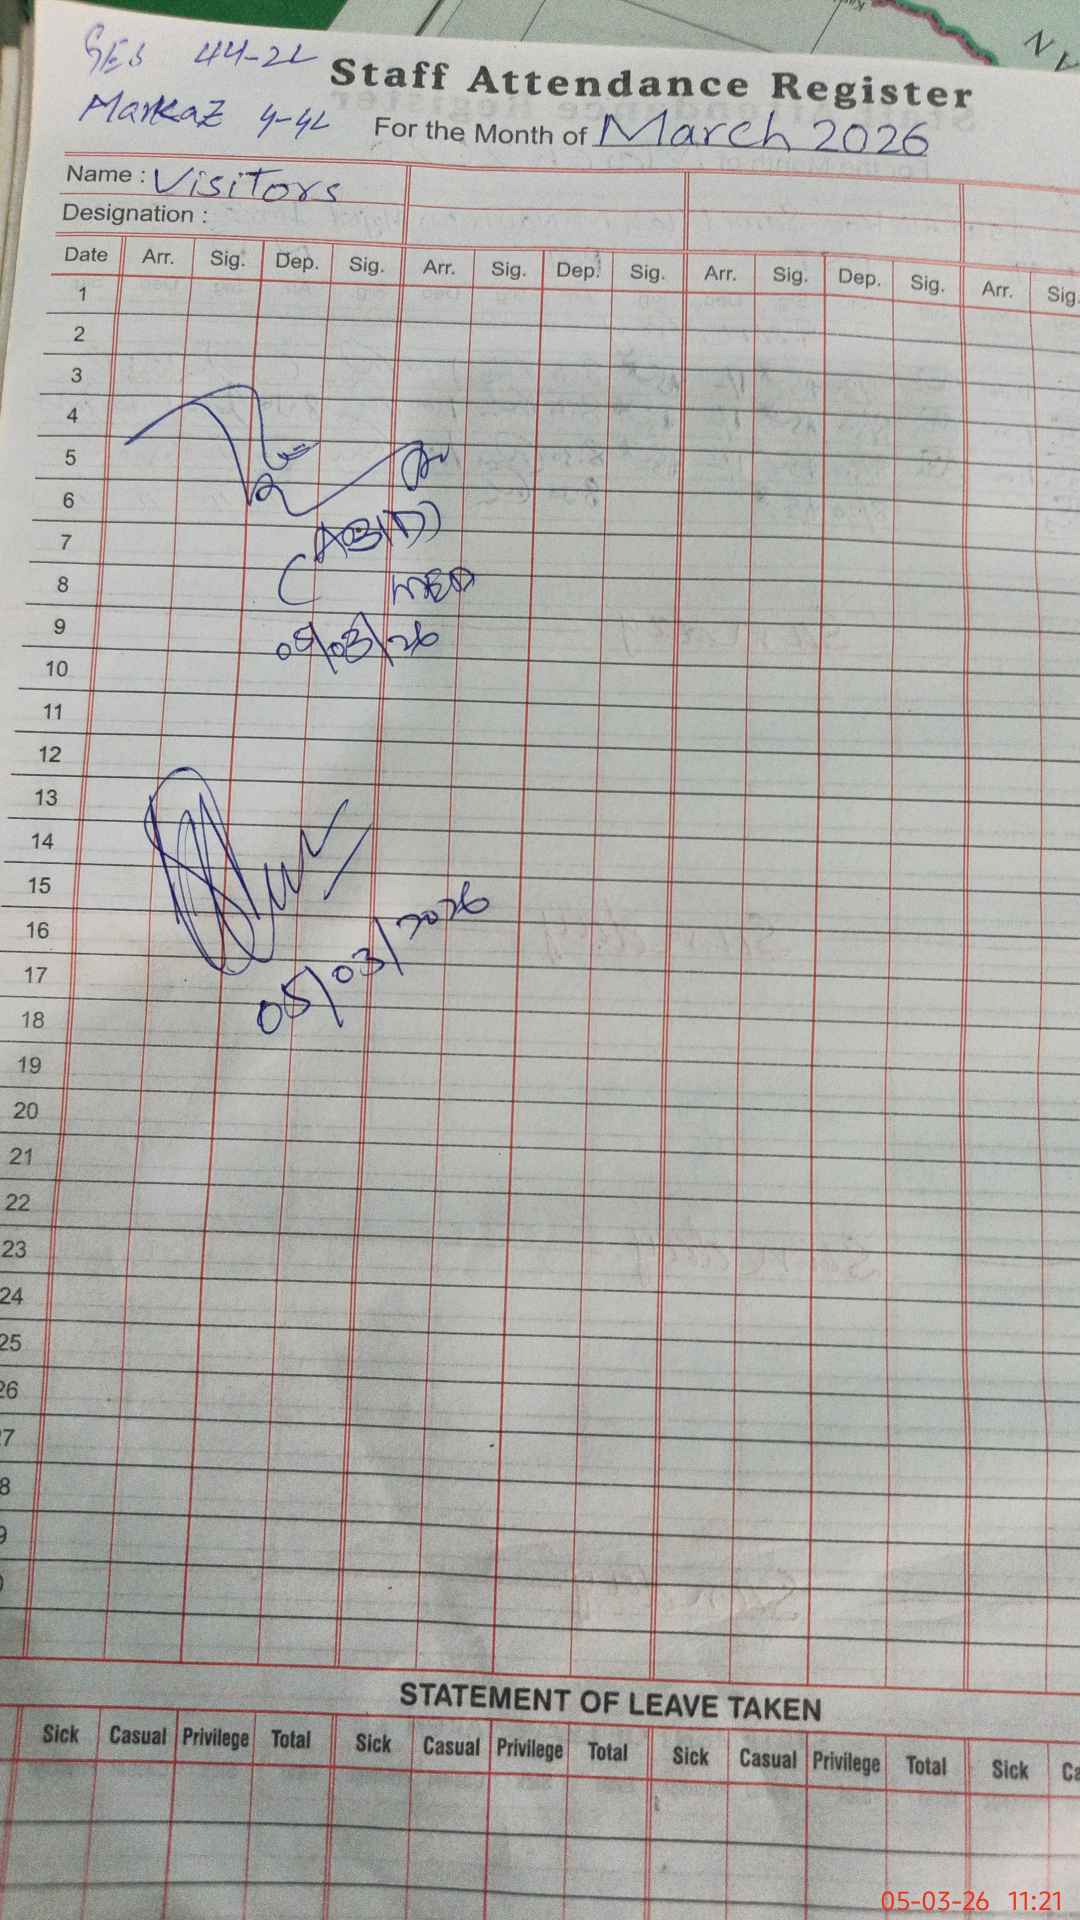 GES 44-2L
Staff Attendance Register
Markaz 4-4L
For the Month of March 2026
Name : Visitors
Designation :
Date Arr. Sig. Dep. Sig. Arr. Sig. Dep. Sig. Arr. Sig. Dep. Sig. Arr. Sig.
1
2
3
4
5
6
7
8
9
05/03/26
10
11
12
13
14
15
16
05/03/2026
17
18
19
20
21
22
23
24
25
26
7
8
9
STATEMENT OF LEAVE TAKEN
Sick Casual Privilege Total Sick Casual Privilege Total Sick Casual Privilege Total Sick Ca
05-03-26 11:21